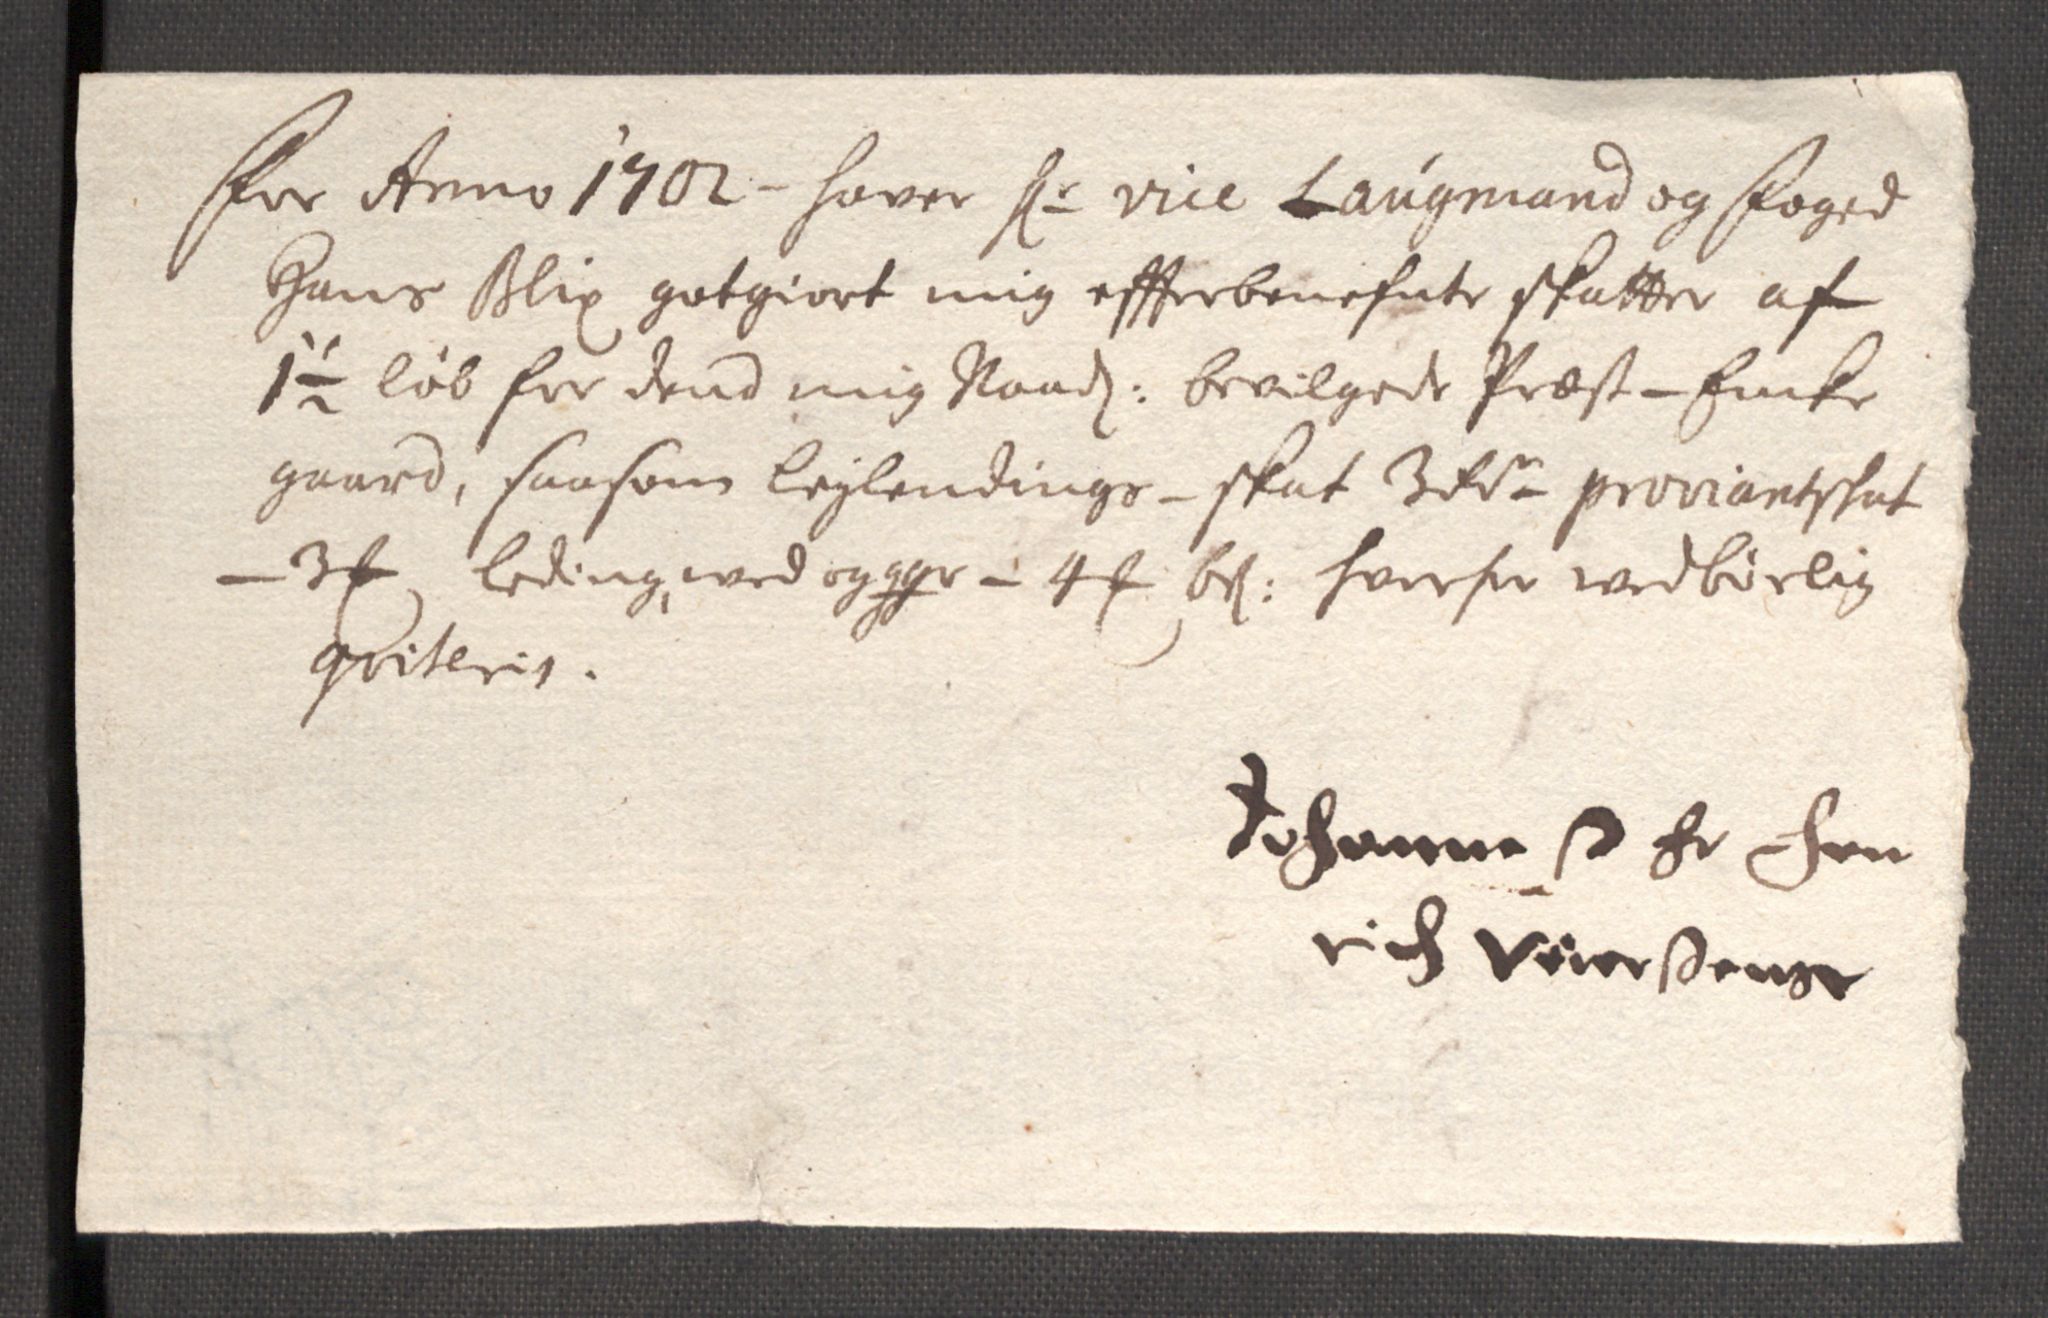 For Anno 1702 - haver Hr vice Laugmand og Foged
Hans Blix gotgiort mig effterbenefnte skatter af
1½ løb for dend mig Naad: bevilgede Præst-Encke
gaard, saasom leylendings-skat 3 proviantskat
- 3 leding, med og - 4 bet: hvorfor wedbørlig
qviteris.
Johanne S Hen
rich